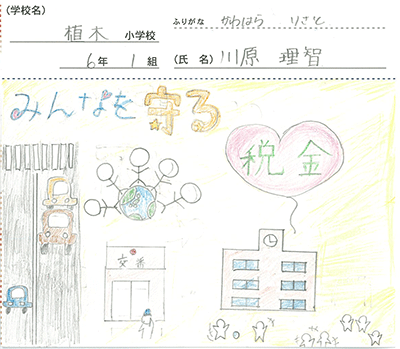 (学校名)
植木 小学校
6年 1組
ふりがな かわはら りさと
(氏 名) 川原 理智
みんなを守る
税金
交番